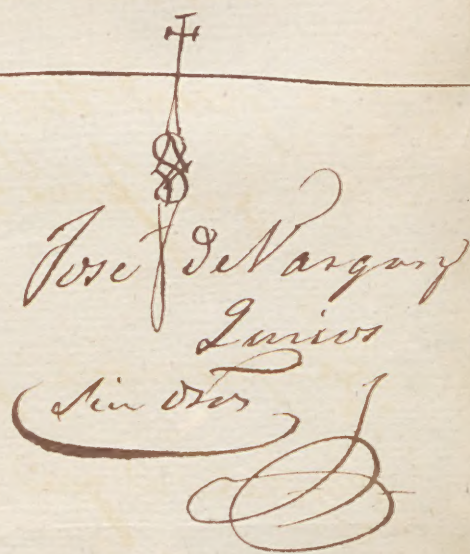 José de Vargas y
Quiros
sin dros